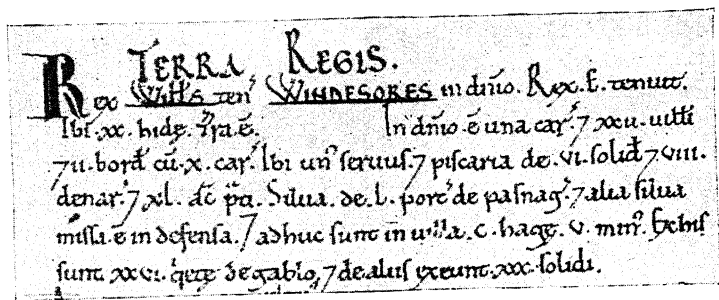 TERRA REGIS.
Rex Willꝰs ten̄ WINDESORES in dn̄io. Rex. E. tenuit.
Ibi. xx. hidę. t̄ra. ē. In dn̄io. ē una car̄. ⁊ xxii. uilli
⁊ ii. bord̄ cū. x. car̄. Ibi un̄ seruus. ⁊ piscaria de. vi. solid̄ ⁊ viii.
denar̄. ⁊ xl. ac̄ p̄ti. Silua. de. l. porc̄ de pasnaḡ. ⁊ alia silua
missa. ē in defensa. ⁊ adhuc sunt in uilla. c. hagę. v. min̄. Ex his
sunt. xxvi. q̄etę de gablo, ⁊ de aliis exeunt. xxx. solidi.